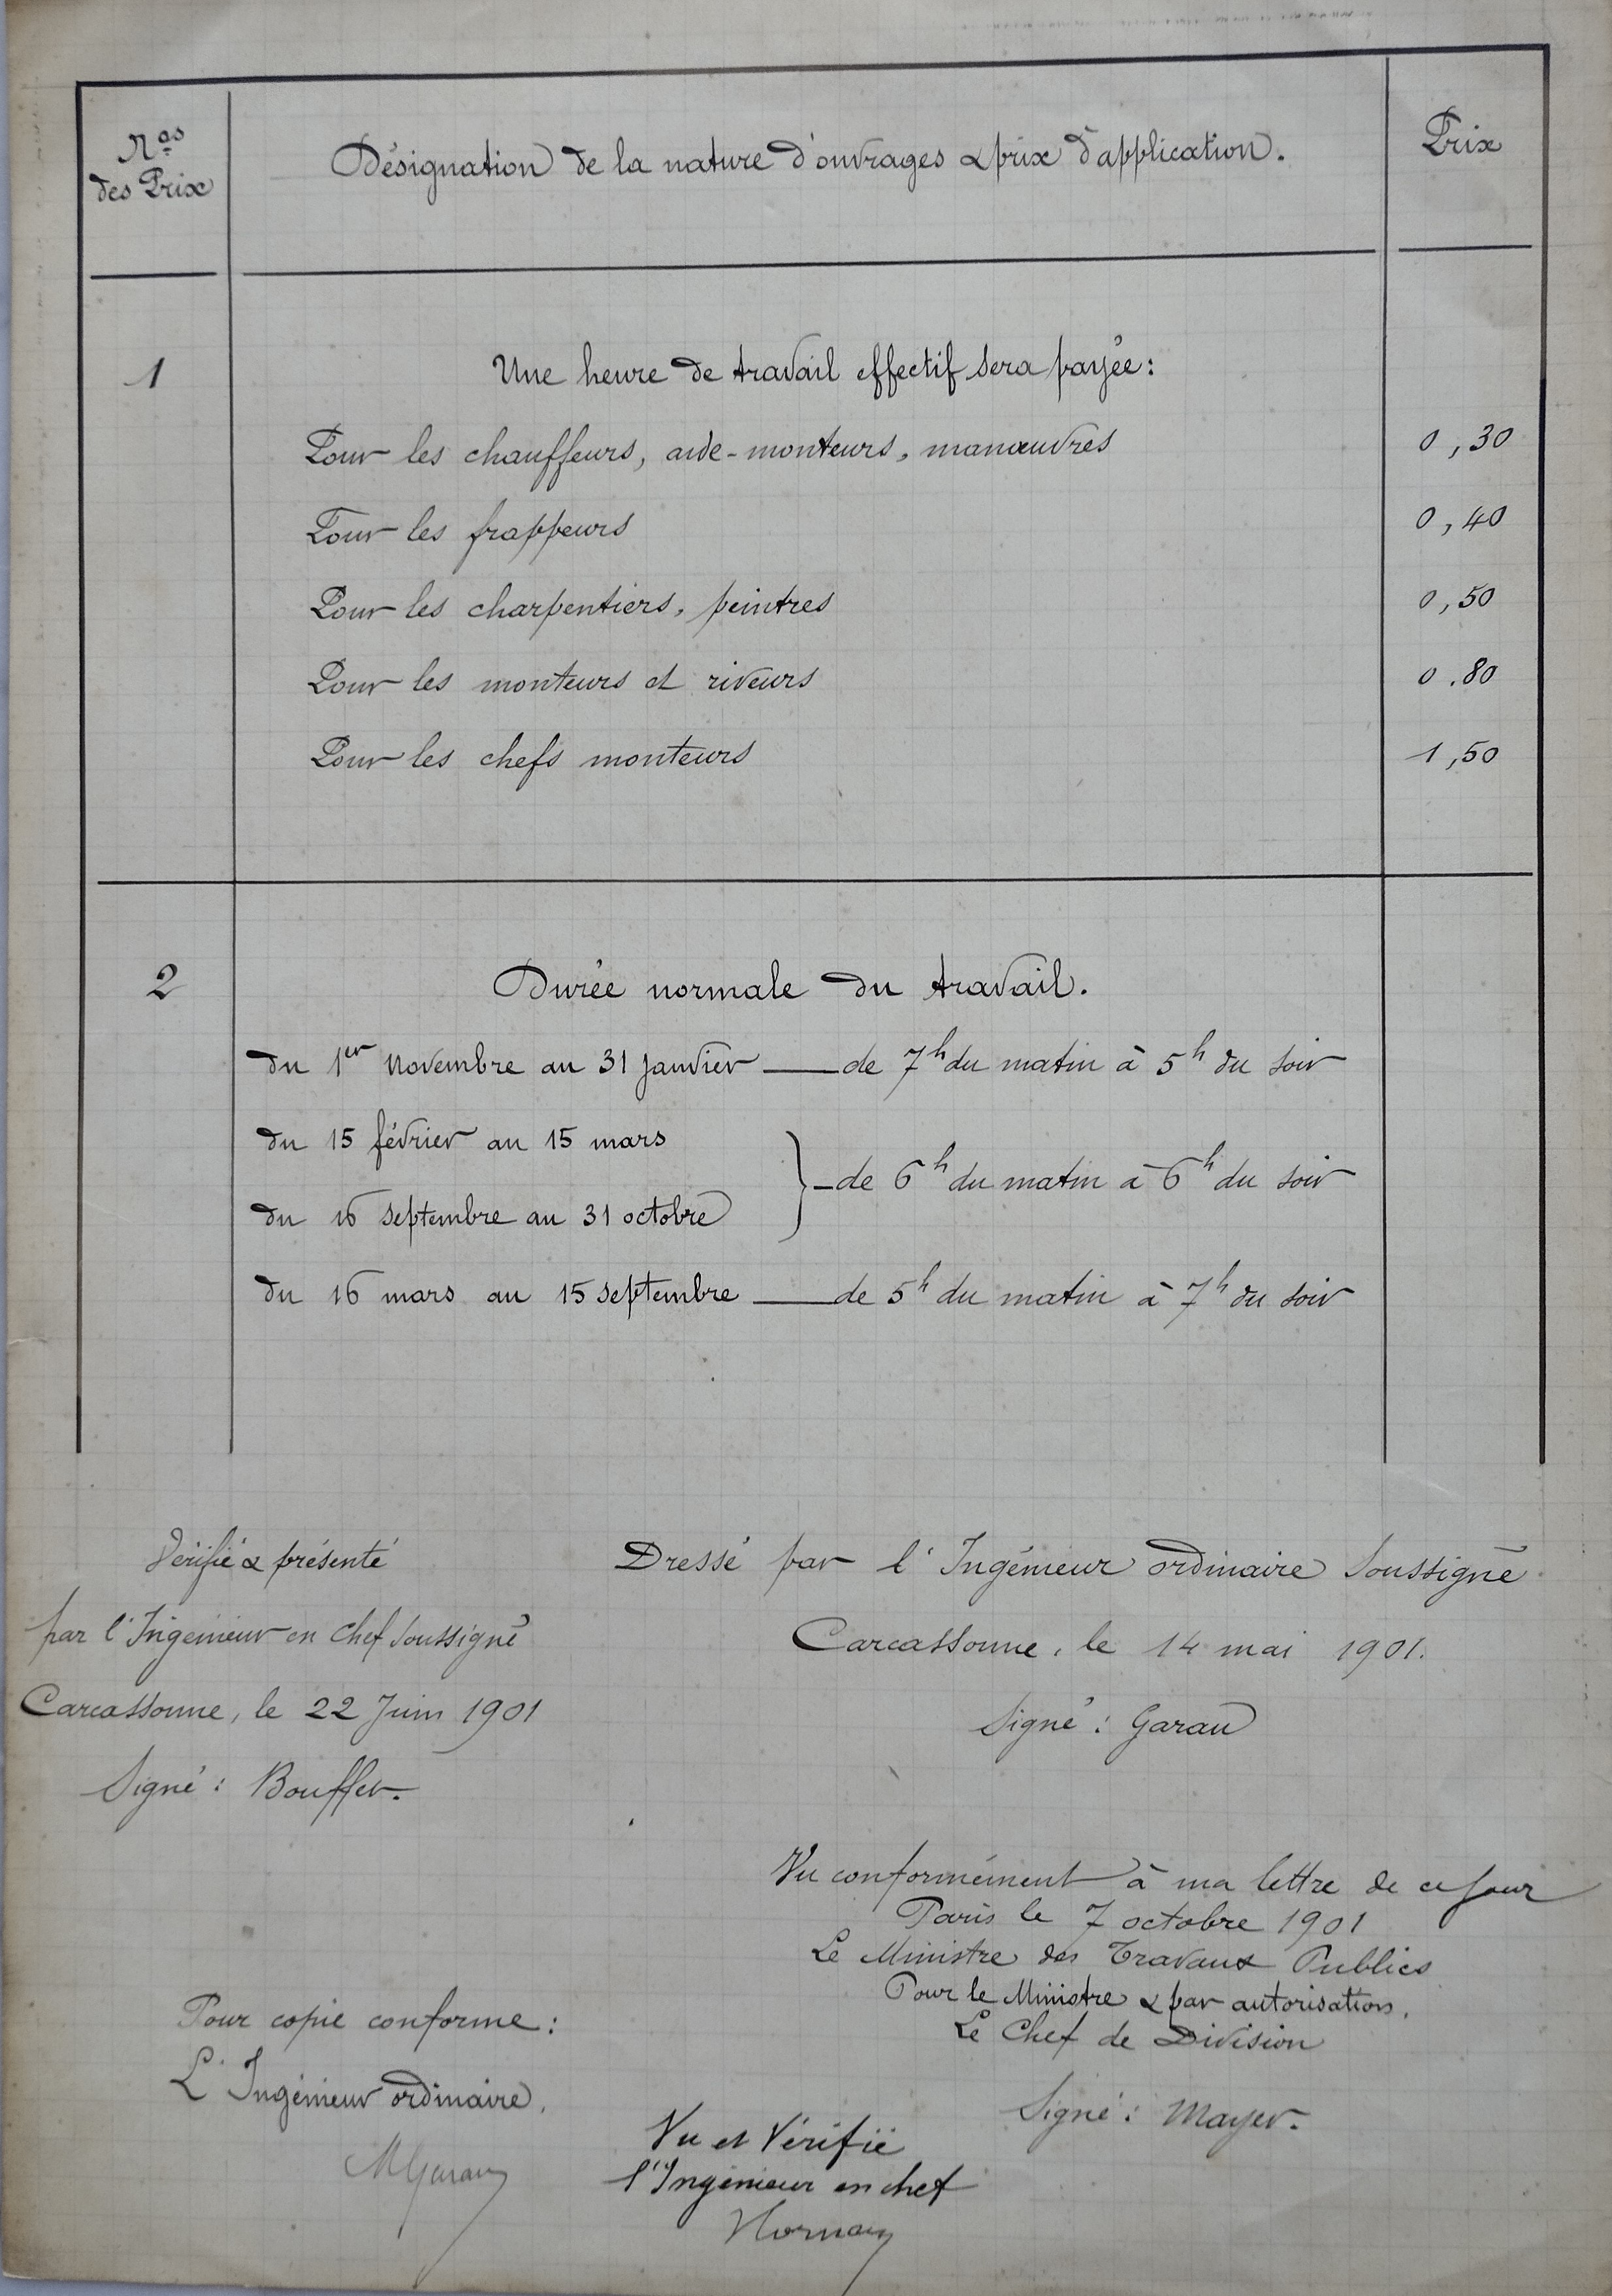 Nos
des Prix
Désignation de la nature d'ouvrages & prix d'application.
Prix
1
Une heure de travail effectif sera payée:
Pour les chauffeurs, aide-monteurs, manœuvres
0,30
Pour les frappeurs
0,40
Pour les charpentiers, peintres
0,50
Pour les monteurs et riveurs
0.80
Pour les chefs monteurs
1,50
2
Durée normale du travail.
du 1er Novembre au 31 Janvier — de 7h du matin à 5h du soir
du 15 février au 15 mars
du 16 septembre au 31 octobre
} — de 6h du matin à 6h du soir
du 16 mars au 15 septembre — de 5h du matin à 7h du soir
Vérifié & présenté
par l'Ingénieur en chef soussigné
Carcassonne, le 22 Juin 1901
Signé: Bouffet.
Dressé par l'Ingénieur ordinaire soussigné
Carcassonne, le 14 mai 1901.
Signé: Garau
Vu conformément à ma lettre de ce jour
Paris le 7 octobre 1901
Le Ministre des Travaux Publics
Pour le Ministre & par autorisation,
Le Chef de Division
Signé: Mayer.
Pour copie conforme:
L'Ingénieur ordinaire,
MGarau
Vu et Vérifié
l'Ingénieur en chef